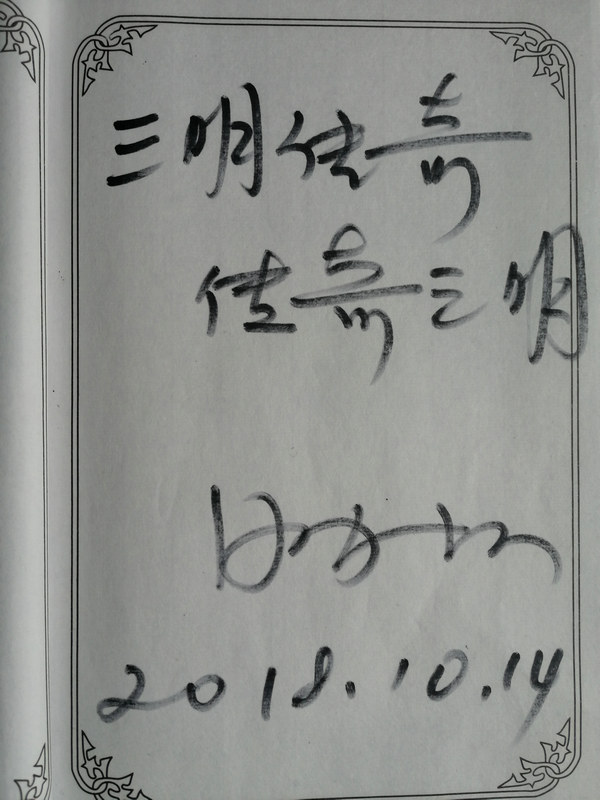 三明传奇
传奇三明
2018.10.14